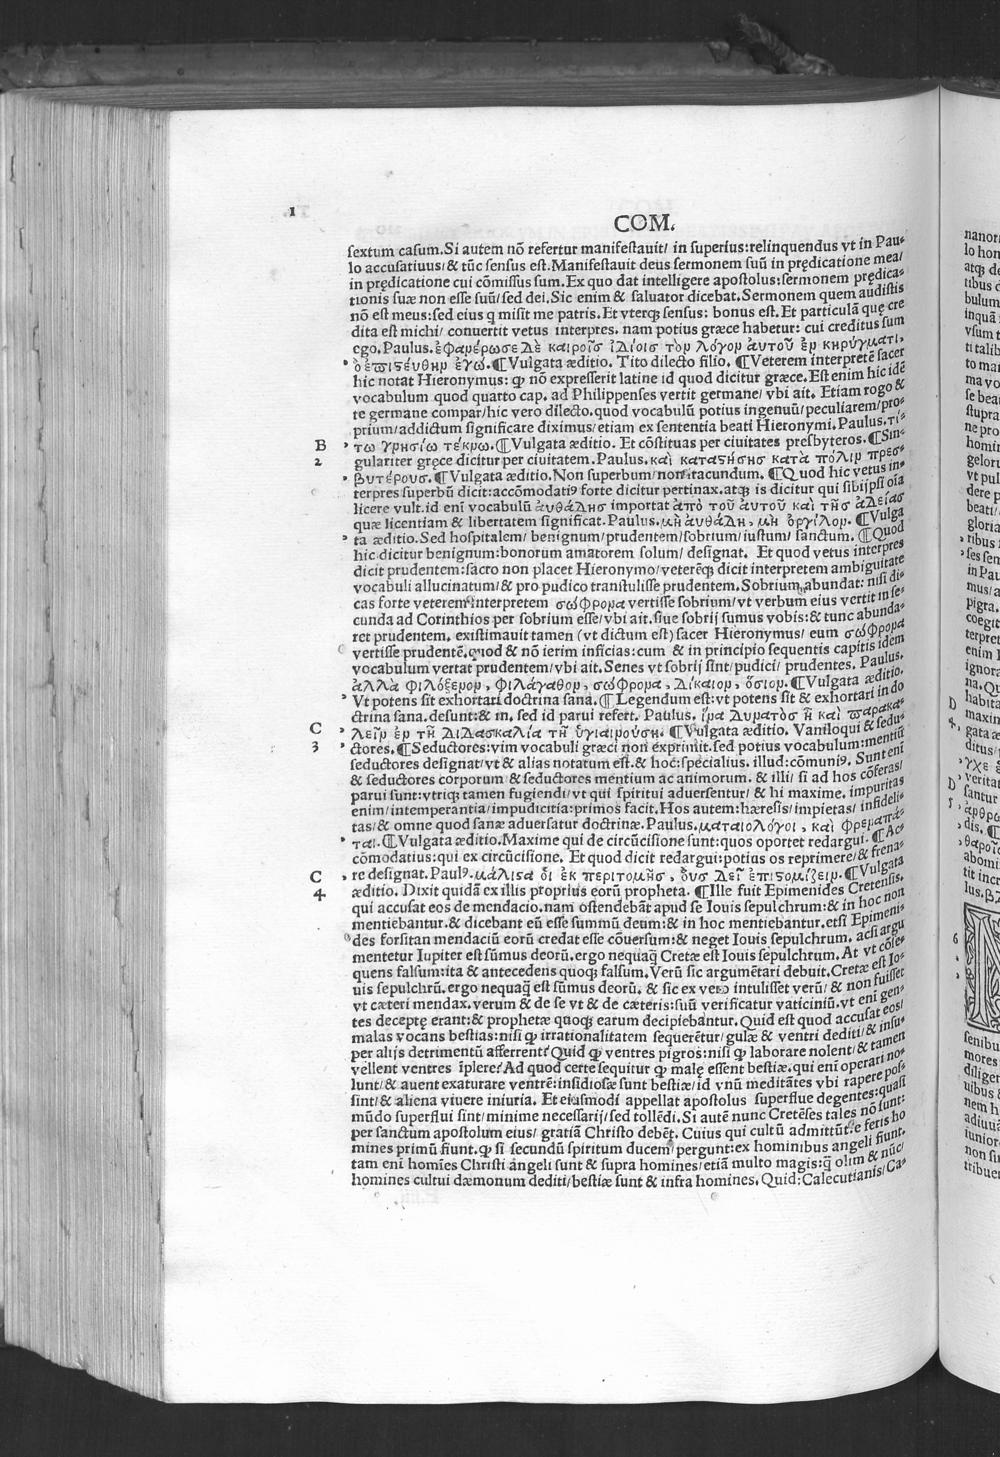 1
COM.
sextum casum. Si autem nō refertur manifestauit/ in superius: relinquendus vt in Pau-
lo accusatiuus/ & tūc sensus est. Manifestauit deus sermonem suū in prędicatione mea/
in prędicatione cui cōmissus sum. Ex quo dat intelligere apostolus: sermonem prędica-
tionis suæ non esse suū/ sed dei. Sic enim & saluator dicebat. Sermonem quem audistis
nō est meus: sed eius q misit me patris. Et vterqꝫ sensus: bonus est. Et particulā quę cre
dita est michi/ conuertit vetus interpres. nam potius græce habetur: cui creditus sum
ego. Paulus. ἐφανέρωσε δὲ καιροῖσ ἰδίοισ τὸν λόγον ἀυτοῦ ἐν κηρύγματι,
ὃ ἐπιστέυθην ἐγώ. ¶ Vulgata æditio. Tito dilecto filio. ¶ Veterem interpretē sacer
hic notat Hieronymus: ꝙ nō expresserit latine id quod dicitur græce. Est enim hic idē
vocabulum quod quarto cap. ad Philippenses vertit germane/ vbi ait. Etiam rogo &
te germane compar/ hic vero dilecto. quod vocabulū potius ingenuū/ peculiarem/ pro-
prium/ addictum significare diximus/ etiam ex sententia beati Hieronymi. Paulus. τί-
B τω γνησίω τέκνω. ¶ Vulgata æditio. Et cōstituas per ciuitates presbyteros. ¶ Sin-
2 gulariter gręce dicitur per ciuitatem. Paulus. καὶ καταστήσησ κατὰ πόλιν πρεσ-
βυτέρουσ. ¶ Vulgata æditio. Non superbum/ non iracundum. ¶ Quod hic vetus in-
terpres superbū dicit: accōmodatiꝰ forte dicitur pertinax. atqꝫ is dicitur qui sibijpsi oīa
licere vult. id enī vocabulū ἀυθάδησ importat ἀπὸ τοῦ ἀυτοῦ καὶ τῆσ ἀδείασ
quæ licentiam & libertatem significat. Paulus. μὴ ἀυθάδη, μὴ ὀργίλον. ¶ Vulga
ta æditio. Sed hospitalem/ benignum/ prudentem/ sobrium/ iustum/ sanctum. ¶ Quod
hic dicitur benignum: bonorum amatorem solum/ designat. Et quod vetus interpres
dicit prudentem: sacro non placet Hieronymo/ veterēqꝫ dicit interpretem ambiguitate
vocabuli allucinatum/ & pro pudico transtulisse prudentem. Sobrium, abundat: nisi di-
cas forte veterem interpretem σώφρονα vertisse sobrium/ vt verbum eius vertit in se-
cunda ad Corinthios per sobrium esse/ vbi ait. siue sobrij sumus vobis: & tunc abunda-
ret prudentem. existimauit tamen (vt dictum est) sacer Hieronymus/ eum σώφρονα
vertisse prudentē. quod & nō ierim inficias: cum & in principio sequentis capitis idem
vocabulum vertat prudentem/ vbi ait. Senes vt sobrij sint/ pudici/ prudentes. Paulus.
ἀλλὰ φιλόξενον, φιλάγαθον, σώφρονα, δίκαιον, ὅσιον. ¶ Vulgata æditio.
Vt potens sit exhortari doctrina sana. ¶ Legendum est: vt potens sit & exhortari in do
ctrina sana. desunt: & in. sed id parui refert. Paulus. ἵνα δυνατὸσ ἦ καὶ παρακα-
C λεῖν ἐν τῆ διδασκαλία τῆ ὑγιαινούση. ¶ Vulgata æditio. Vaniloqui & sedu-
3 ctores. ¶ Seductores: vim vocabuli græci non exprimit. sed potius vocabulum: mentiū
seductores designat/ vt & alias notatum est. & hoc: specialius. illud: cōmuniꝰ. Sunt enī
& seductores corporum & seductores mentium ac animorum. & illi/ si ad hos cōferas/
parui sunt: vtriqꝫ tamen fugiendi/ vt qui spiritui aduersentur/ & hi maxime. impuritas
enim/ intemperantia/ impudicitia: primos facit. Hos autem: hæresis/ impietas/ infideli-
tas/ & omne quod sanæ aduersatur doctrinæ. Paulus. ματαιολόγοι, καὶ φρεναπά-
ται. ¶ Vulgata æditio. Maxime qui de circūcisione sunt: quos oportet redargui. ¶ Ac-
cōmodatius: qui ex circūcisione. Et quod dicit redargui: potius os reprimere/ & frena-
C re designat. Paulꝰ. μάλιστα ὁι ἐκ περιτομῆσ, ὁυσ δεῖ ἐπιστομίζειν. ¶ Vulgata
4 æditio. Dixit quidā ex illis proprius eorū propheta. ¶ Ille fuit Epimenides Cretensis.
qui accusat eos de mendacio. nam ostendebāt apud se Iouis sepulchrum: & in hoc non
mentiebantur. & dicebant eū esse summū deum: & in hoc mentiebantur. etsi Epimeni-
des forsitan mendaciū eorū credat esse cōuersum: & neget Iouis sepulchrum. acsi argu
mentetur Iupiter est sūmus deorū. ergo nequaq̄ Cretæ est Iouis sepulchrum. At vt cōse-
quens falsum: ita & antecedens quoqꝫ falsum. Verū sic argumētari debuit. Cretæ est Io-
uis sepulchrū. ergo nequaq̄ est sūmus deorū. & sic ex vero intulisset verū/ & non fuisset
vt cæteri mendax. verum & de se vt & de cæteris: suū verificatur vaticiniū. vt enī gen-
tes deceptę erant: & prophetæ quoqꝫ earum decipiebantur. Quid est quod accusat eos/
malas vocans bestias: nisi ꝙ irrationalitatem sequerētur/ gulæ & ventri dediti/ & insu-
per alijs detrimentū afferrent? Quid ꝙ ventres pigros: nisi ꝙ laborare nolent/ & tamen
vellent ventres īplere? Ad quod certe sequitur ꝙ malę essent bestiæ. qui enī operari no-
lunt/ & auent exaturare ventrē: insidiosæ sunt bestiæ/ id vnū meditātes vbi rapere pos-
sint/ & aliena viuere iniuria. Et eiusmodi appellat apostolus superflue degentes: quasi
mūdo superflui sint/ minime necessarij/ sed tollēdi. Si autē nunc Cretēses tales nō sunt:
per sanctum apostolum eius/ gratiā Christo debēt. Cuius qui cultū admittūt: e feris ho
mines primū fiunt. ꝙ si secundū spiritum ducem pergunt: ex hominibus angeli fiunt.
tam enī homīes Christi āngeli sunt & supra homines/ etiā multo magis: q̄ olim & nūc/
homines cultui dæmonum dediti/ bestiæ sunt & infra homines. Quid: Calecutianis/ Ca-